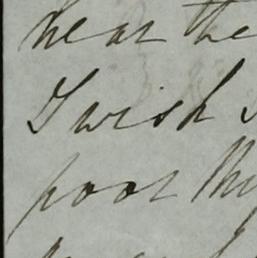 near the
I wish
poor